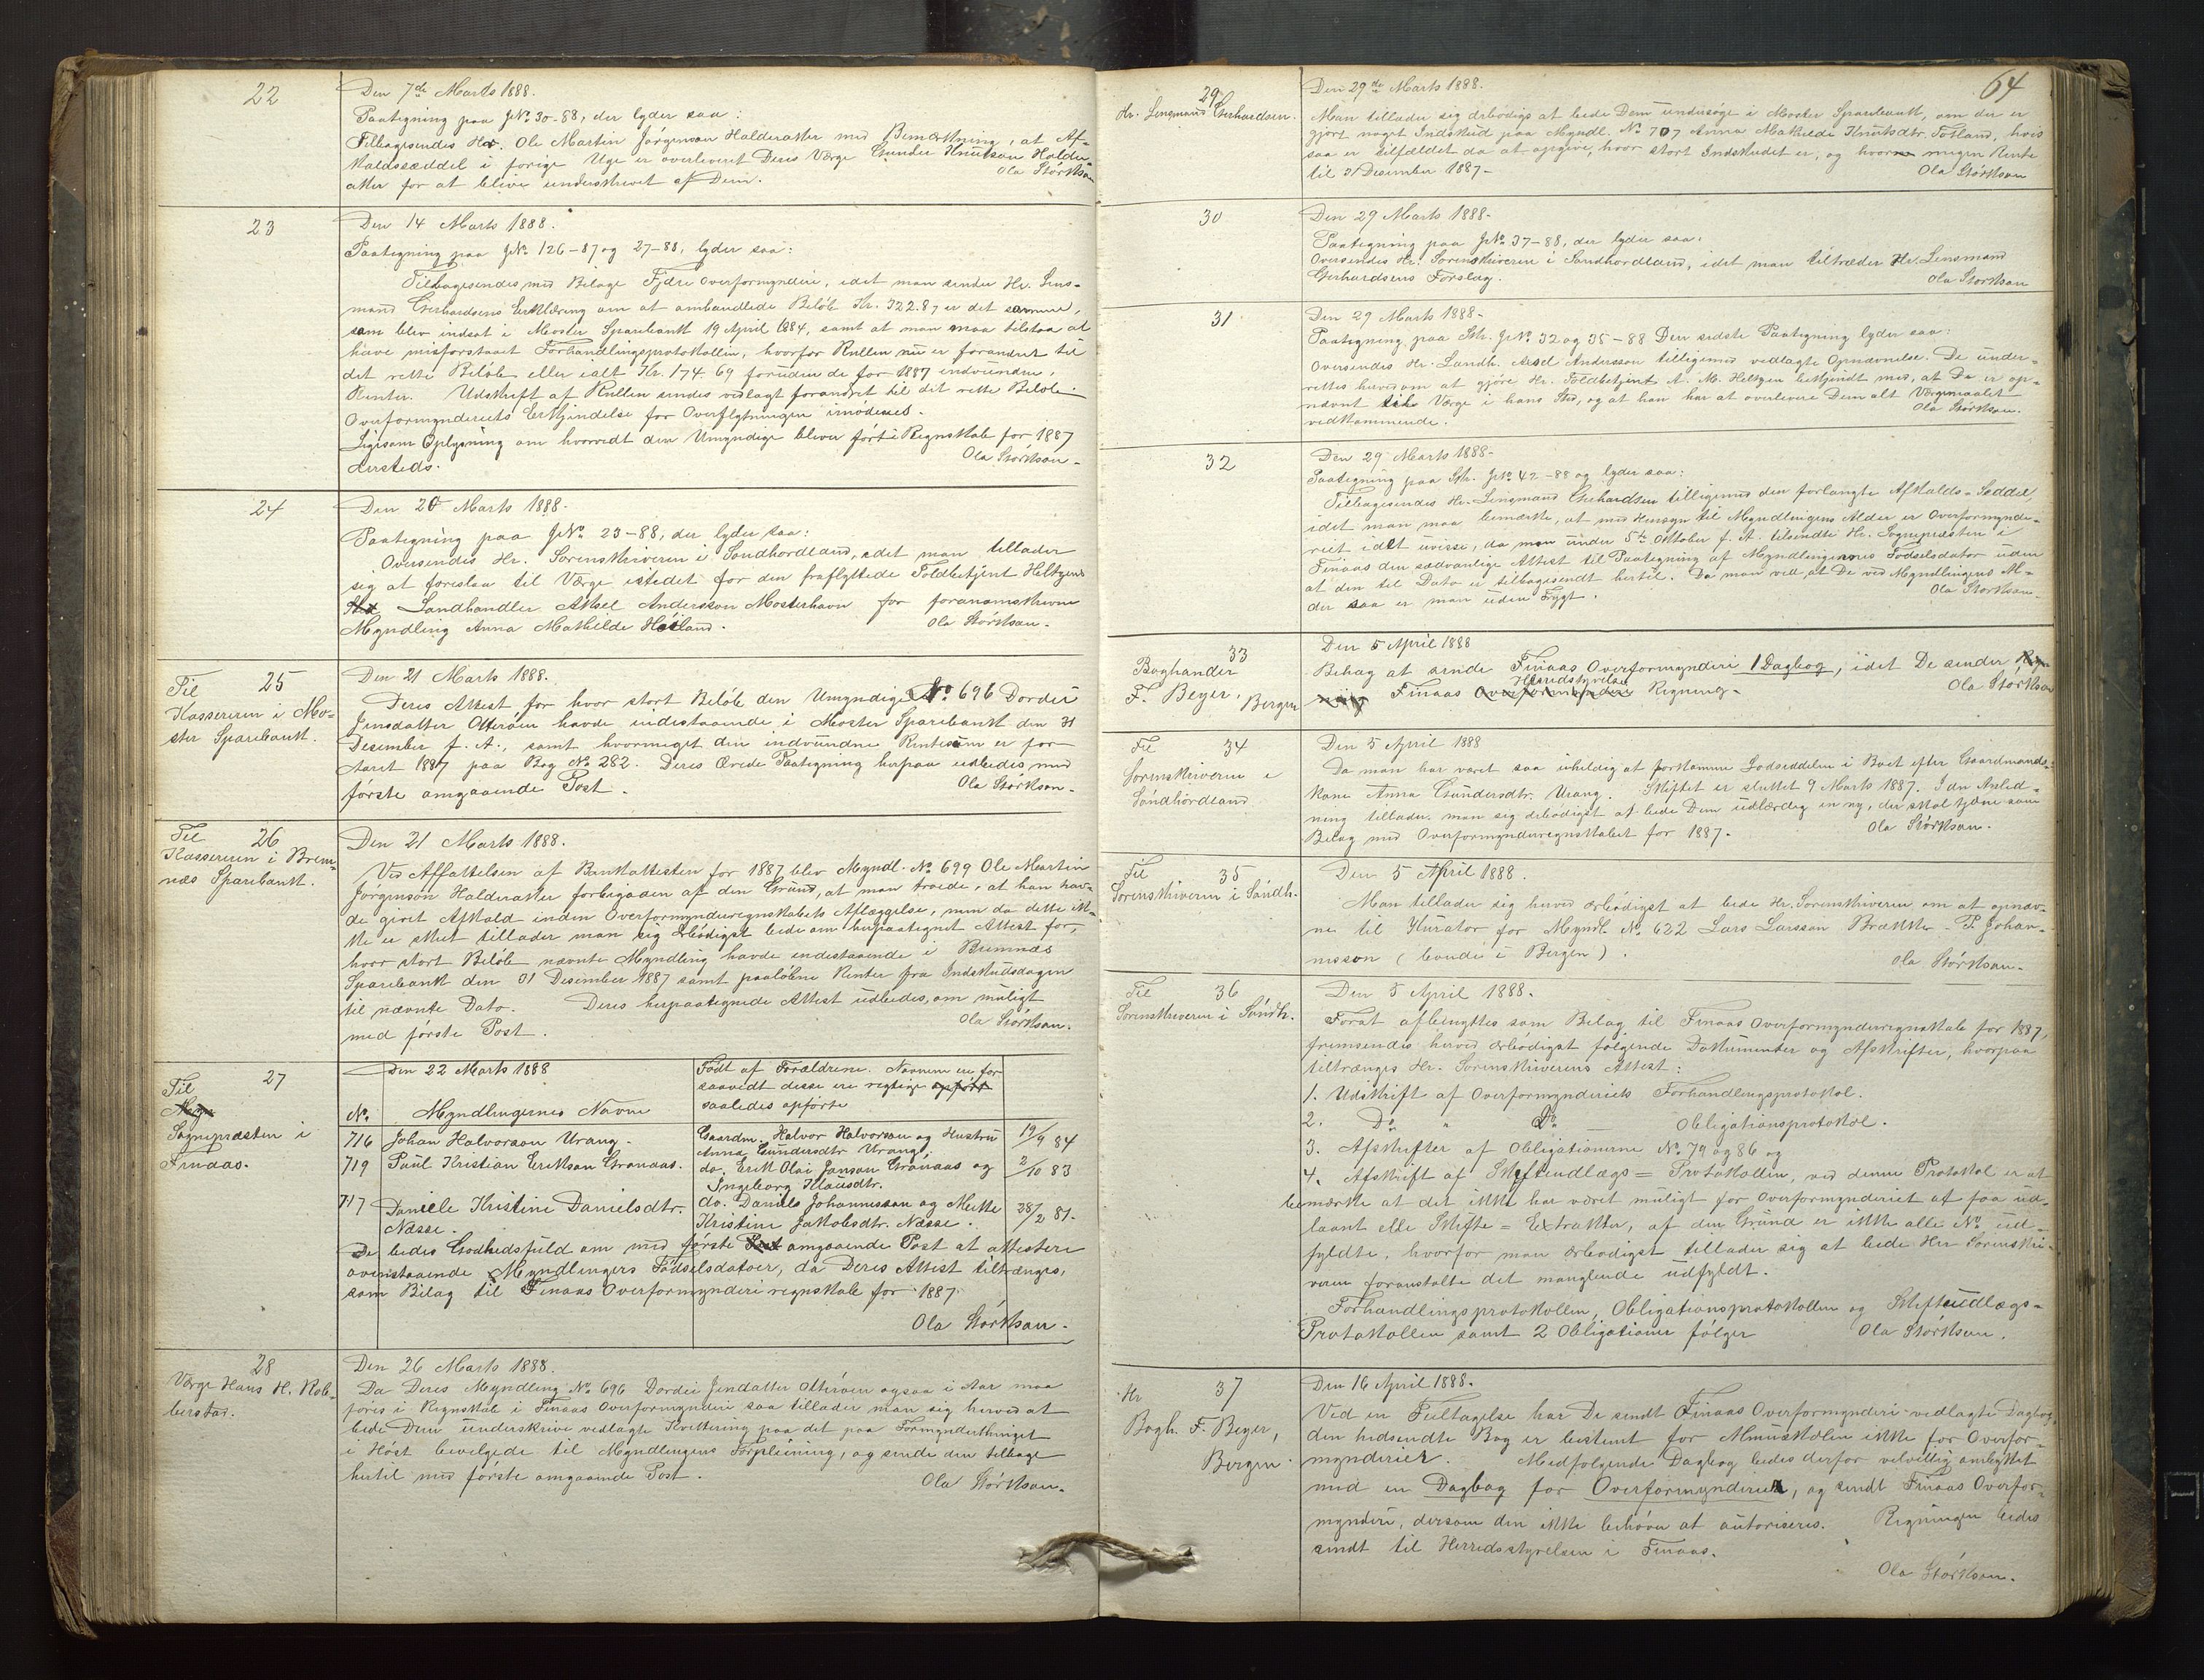 22
Den 7de Marts 1888.
Paategning paa JNo 30-88, der lyder saa:
Tilbagesendes Hr. Ole Martin Jörgenson Halderaker med Bemærkning, at Af-
kaldsseddel i forige Uge er overleveret Deres Værge Gunder Knutson Halder-
aker for at blive underskrevet af Dem.
Ola Störkson
23
Den 14 Marts 1888.
Paategning paa JNo 126-87 og 27-88, lyder saa:
Tilbagesendes med Bilage Fjære Overformynderi, idet man sender Hr. Lens-
mand Gerhardsens Erklæring om at omhandlede Beløb Kr. 322.87 er det samme,
som blev indsat i Moster Sparebank 19 April 1884, samt at man maa tilstaa at
have misforstaaet Forhandlingsprotokollen, hvorfor Rullen nu er forandret til
det rette Beløb eller ialt Kr. 174.69 foruden de for 1887 indvundne
Renter. Udskrift af Rullen sendes vedlagt forandret til det rette Beløb.
Overformynderiets Erkjendelse for Overflytningen imødesees.
Ligesom Oplysning om hvorvidt den Umyndige bliver ført i Regnskab for 1887
dersteds.
Ola Störkson-
24
Den 20 Marts 1888.
Paategning paa JNo 23-88, der lyder saa:
Oversendes Hr. Sorenskriveren i Søndhordland, idet man tillader
sig at foreslaa til Værge istedet for den fraflyttede Toldbetjent Heltzens
Landhandler Aksel Andersson Mosterhavn for foranomskrevne
Myndling Anna Mathilde
Ola Störkson-
Til 25
Kassereren i Mo-
ster Sparebank.
Den 21 Marts 1888.
Deres Attest for hvor stort Beløb den Umyndige No 696 Dordei
Jensdatter Otterøen havde indestaaende i Moster Sparebank den 31
Desember f. A., samt hvormeget den indvundne Rentesum er for
Aaret 1887 paa Bog No 282. Deres Ærede Paategning herpaa udbedes med
første omgaaende Post.
Ola Störkson-
Til 26
Kassereren i Brem-
næs Sparebank.
Den 21 Marts 1888.
Ved Affattelsen af Bankattesten for 1887 blev Myndl. No 699 Ole Martin
Jørgenson Halderaker forbigaaen af den Grund, at man troede, at han hav-
de givet Afkald inden Overformynderregnskabets Aflæggelse, men da dette ik-
ke er skeet tillader man sig ærbødigst bede om herpaategnet Attest for,
hvor stort Beløb nævnte Myndling havde indestaaende i Bremnæs
Sparebank den 31 Desember 1887 samt paaløbne Renter fra Indskudsdagen
til nævnte Dato. Deres herpaategnede Attest udbedes, om muligt
med første Post.
Ola Störkson.
Til 27
Sognepræsten i
Finaas.
Den 22 Marts 1888
Født af Forældrene. Navnene ere for-
saavidt disse ere rigtige opført
saaledes opførte
No. Myndlingernes Navne
716 Johan Halvorson Urang. Gaardm. Halvor Halvorson og Hustru 19/9 84
Anna Gundersdtr Urang.
719 Paul Kristian Erikson Grønaas. do. Erik Olai Janson Grønaas og 2/10 83
Ingeborg Klausdtr.
717 Daniele Kristine Danielsdtr. do. Daniels Johannesson og Mette 28/2 81.
Næsse. Kristine Jakobsdtr. Næsse.
De bedes Godhedsfuld om med første omgaaende Post at attestere
ovenstaaende Myndlingers Fødselsdatoer, da Deres Attest tiltrænges,
som Bilag til Finaas Overformynderiregnskab for 1887
Ola Störkson-
28
Værge Hans H. Rob-
berstad.
Den 26 Marts 1888.
Da Deres Myndling No 696 Dordei Jendatter Otterøen ogsaa i Aar maa
føres i Regnskab i Finaas Overformynderi saa tillader man sig herved at
bede Dem underskrive vedlagte Kvittering paa det paa Formynderthinget
i Høst bevilgede til Myndlingens Forpleining, og sende den tilbage
hertil med første omgaaende Post.
Ola Störkson-
64
29
Hr. Lensmand Gerhardsen.
Den 29de Marts 1888.
Man tillader sig ærbødigst at bede Dem undersøge i Moster Sparebank, om der er
gjort noget Indskud paa Myndl. No 707 Anna Mathilde Knutsdtr. Totland, hvis
saa er tilfældet da at opgive, hvor stort Indskudet er, og hvor megen Rente
til 31 Desember 1887-
Ola Störkson
30
Den 29 Marts 1888-
Paategning paa JNo 37-88, der lyder saa:
Oversendes Hr. Sorenskriveren i Søndhordland, idet man tiltræder Hr. Lensmand
Gerhardsens Forslag.
Ola Störkson
31
Den 29 Marts 1888-
Paategning paa Skr. JNo 32 og 35-88 Den sidste Paategning lyder saa:
Oversendes Hr. Landh. Aksel Andersson tilligemed vedlagte Opnævnelse. De under-
rettes herved om at gjøre Hr. Toldbetjent A. M. Heltzen bekjendt med, at De er op-
nævnt til Værge i hans Sted, og at han har at overlevere Dem alt Værgemaalet
vedkommende.
Ola Störkson.
32
Den 29 Marts 1888-
Paategning paa Skr. JNo 42-88 og lyder saa:
Tilbagesendes Hr. Lensmand Gerhardsen tilligemed den forlangte Afkalds-Seddel,
idet man maa bemærke, at med Hensyn til Myndlingens Alder er Overformynde-
riet idet uvisse, da man under 5te Oktober f. A. tilsendte Hr. Sognepræsten i
Finaas den sædvanlige Attest til Paategning af Myndlingernes Fødselsdator uden
at den til Dato er tilbagesendt hertil. Da man ved, at De ved Myndlingens Al-
der saa er man uden Frygt.
Ola Störkson-
33
Boghander
F. Beyer, Bergen
Den 5 April 1888
Behag at sende Finaas Overformynderi 1 Dagbog, idet De sender
Herredsstyrelse
Finaas Overformynderi Regning-
Ola Störkson
Til 34
Sorenskriveren i
Søndhordland
Den 5 April 1888
Da man har været saa uheldig at forkomme Lodseddelen i Boet efter Gaardmands-
kone Anna Gundersdtr. Urang. Skiftet er sluttet 9 Marts 1887. I dn Anled-
ning tillader man sig ærbødigst at bede Dem udfærdig en ny, der skal tjene som
Bilag med Overformynderregnskabet for 1887-
Ola Störkson.
Til 35
Sorenskriveren i Søndh.
Den 5 April 1888.
Man tillader sig herved ærbødigst at bede Hr. Sorenskriveren om at opnæv-
ne til Kurator for Myndl. No 622 Lars Larsson Brække- P. Johan-
nesson (boende i Bergen).
Ola Störkson-
Til 36
Sorenskriveren i Søndh.
Den 5 April 1888.
Forat afbenyttes som Bilag til Finaas Overformynderregnskab for 1887,
fremsendes herved ærbødigst følgende Dokumenter og Afskrifter, hvorpaa
tiltrænges Hr. Sorenskriverens Attest:
1. Udskrift af Overformynderiets Forhandlingsprotokol.
2. Do " Do — Obligationsprotokol.
3. Afskrifter af Obligationerne No 79 og 86 og
4. Afskrift af Skifteudlægs=Protokollen, ved denne Protokol er at
bemærke at det ikke har været muligt for Overformynderiet at faa ud-
laant elle Skifte=Extrakter, af den Grund er ikke alle No ud-
fyldte, hvorfor man ærbødigst tillader sig at bede Hr Sorenskri-
veren foranstalte det manglende udfyldt.
Forhandlingsprotokollen, Obligationsprotokollen og Skifteudlægs-
Protokollen samt 2 Obligationer følger
Ola Störkson.
Hr 37
Bogh. F. Beyer,
Bergen.
Den 16 April 1888.
Ved en Feiltagelse har De sendt Finaas Overformynderi vedlagte Dagbog,
den hidsendte Bog er bestemt for Almueskolen ikke for Overfor-
mynderiet. Medfølgende Dagbog bedes derfor velvillig ombyttet
med en Dagbog for Overformynderiet, og sendt Finaas Overfor-
mynderi, dersom den ikke behøver at autoriseres. Regningen bedes
sendt til Herredsstyrelsen i Finaas.
Ola Störkson.